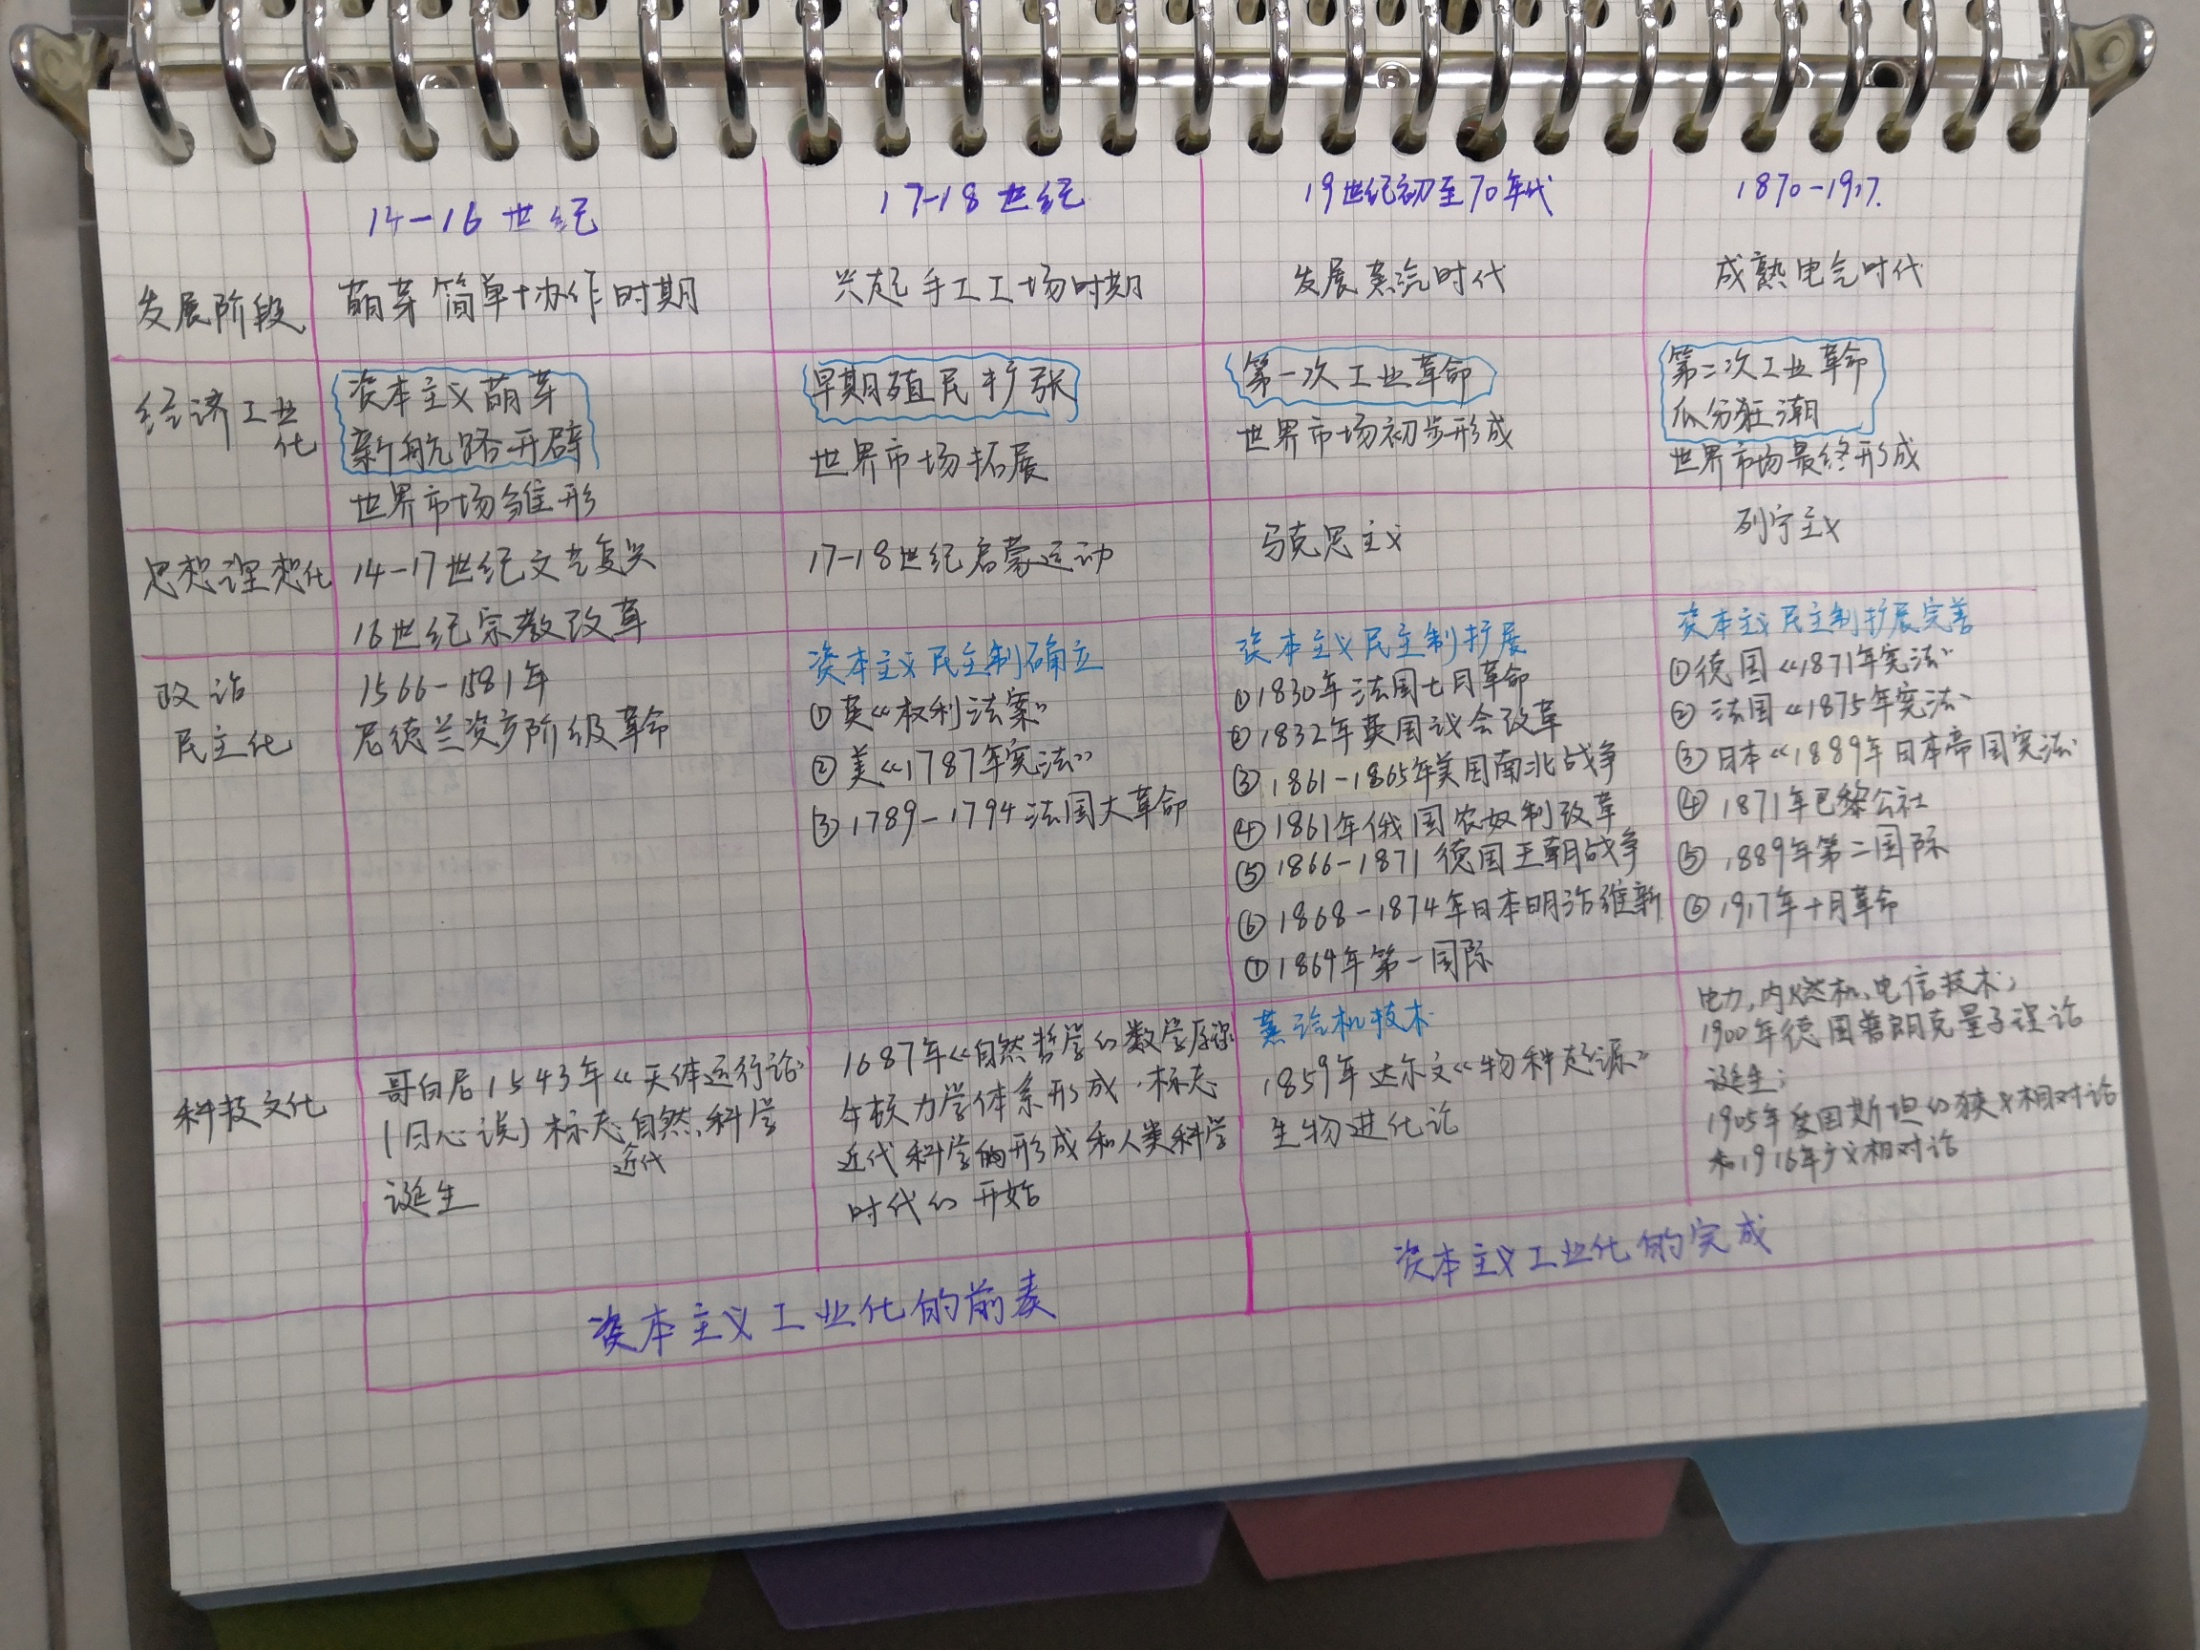 14-16世纪
17-18世纪
19世纪初至70年代
1870-1917.
发展阶段
萌芽 简单协作时期
兴起 手工工场时期
发展 蒸汽时代
成熟 电气时代
经济工业
化
资本主义萌芽
新航路开辟
世界市场雏形
早期殖民扩张
世界市场拓展
第一次工业革命
世界市场初步形成
第二次工业革命
瓜分狂潮
世界市场最终形成
思想理想化
14-17世纪文艺复兴
16世纪宗教改革
17-18世纪启蒙运动
马克思主义
列宁主义
政治
民主化
1566-1581年
尼德兰资产阶级革命
资本主义民主制确立
①英《权利法案》
②美《1787年宪法》
③1789-1794法国大革命
资本主义民主制扩展
①1830年法国七月革命
②1832年英国议会改革
③1861-1865年美国南北战争
④1861年俄国农奴制改革
⑤1866-1871德国王朝战争
⑥1868-1874年日本明治维新
⑦1864年第一国际
资本主义民主制扩展完善
①德国《1871年宪法》
②法国《1875年宪法》
③日本《1889年日本帝国宪法》
④1871年巴黎公社
⑤1889年第二国际
⑥1917年十月革命
科技文化
哥白尼1543年《天体运行论》
(日心说)标志自然科学
近代
诞生
1687年《自然哲学的数学原理》
牛顿力学体系形成,标志
近代科学的形成和人类科学
时代的开始
蒸汽机技术
1859年达尔文《物种起源》
生物进化论
电力,内燃机,电信技术;
1900年德国普朗克量子理论
诞生;
1905年爱因斯坦的狭义相对论
和1916年广义相对论
资本主义工业化的前奏
资本主义工业化的完成